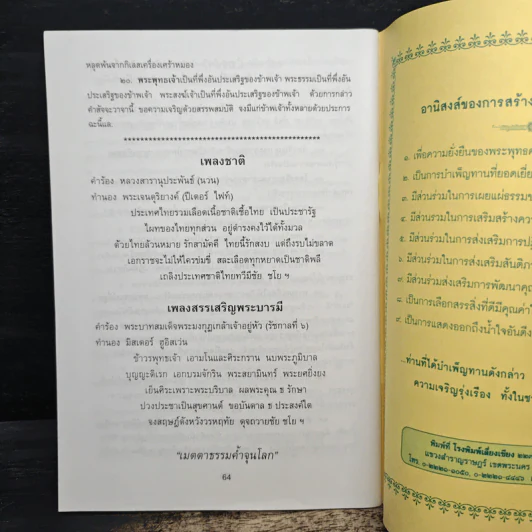 หลุดพ้นจากกิเลสเครื่องเศร้าหมอง
๒๐. พระพุทธเจ้าเป็นที่พึ่งอันประเสริฐของข้าพเจ้า พระธรรมเป็นที่พึ่งอัน
ประเสริฐของข้าพเจ้า พระสงฆ์เจ้าเป็นที่พึ่งอันประเสริฐของข้าพเจ้า ด้วยการกล่าว
คำสัจจะวาจานี้ ขอความเจริญด้วยสรรพสมบัติ จงมีแก่ข้าพเจ้าทั้งหลายด้วยประการ
ฉะนี้แล.
เพลงชาติ
คำร้อง หลวงสารานุประพันธ์ (นวน)
ทำนอง พระเจนดุริยางค์ (ปีเตอร์ ไฟท์)
ประเทศไทยรวมเลือดเนื้อชาติเชื้อไทย เป็นประชารัฐ
ไผทของไทยทุกส่วน อยู่ดำรงคงไว้ได้ทั้งมวล
ด้วยไทยล้วนหมาย รักสามัคคี ไทยนี้รักสงบ แต่ถึงรบไม่ขลาด
เอกราชจะไม่ให้ใครข่มขี่ สละเลือดทุกหยาดเป็นชาติพลี
เถลิงประเทศชาติไทยทวีมีชัย ชโย ฯ
เพลงสรรเสริญพระบารมี
คำร้อง พระบาทสมเด็จพระมงกุฎเกล้าเจ้าอยู่หัว (รัชกาลที่ ๖)
ทำนอง มิสเตอร์ ฮูอิสเว่น
ข้าวรพุทธเจ้า เอามโนและศิระกราน นบพระภูมิบาล
บุญญะดิเรก เอกบรมจักริน พระสยามินทร์ พระยศยิ่งยง
เย็นศิระเพราะพระบริบาล ผลพระคุณ ธ รักษา
ปวงประชาเป็นสุขศานต์ ขอบันดาล ธ ประสงค์ใด
จงสฤษฎ์ดังหวังวรหฤทัย ดุจถวายชัย ชโย ฯ
"เมตตาธรรมค้ำจุนโลก"
64
อานิสงส์ของการสร้าง
๑. เพื่อความยั่งยืนของพระพุทธ
๒. เป็นการบำเพ็ญทานที่ยอดเยี่
๓. มีส่วนร่วมในการเผยแผ่ธรรมข
๔. มีส่วนร่วมในการเสริมสร้างควา
๕. มีส่วนร่วมในการส่งเสริมการป
๖. มีส่วนร่วมในการส่งเสริมสันติภ
๗. มีส่วนร่วมส่งเสริมการพัฒนาคุณ
๘. เป็นการเลือกสรรสิ่งที่ดีมีคุณค่า
๙. เป็นการแสดงออกถึงน้ำใจอันดี
..ท่านที่ได้บำเพ็ญทานดังกล่าว
ความเจริญรุ่งเรือง ทั้งในช
พิมพ์ที่ โรงพิมพ์เลี่ยงเชียง
แขวงสำราญราษฎร์ เขตพระนคร
โทร ๐-๒๒๒๑-๑๐๕๐, ๐-๒๒๒๑-๔๔๔๖